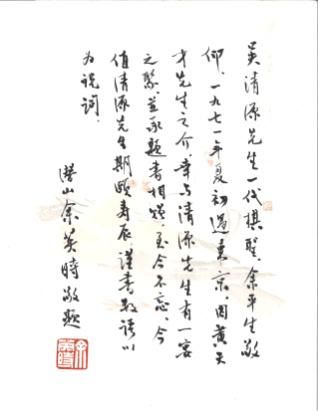 吴清源先生一代棋聖,余平生敬
仰。一九七一年夏初遇東京,因黄天
才先生之介,幸与清源先生有一宴
之聚,並承題書相贈,至今不忘。今
值清源先生期頤寿辰,謹書数語以
为祝词。
潜山余英時敬題
余英時